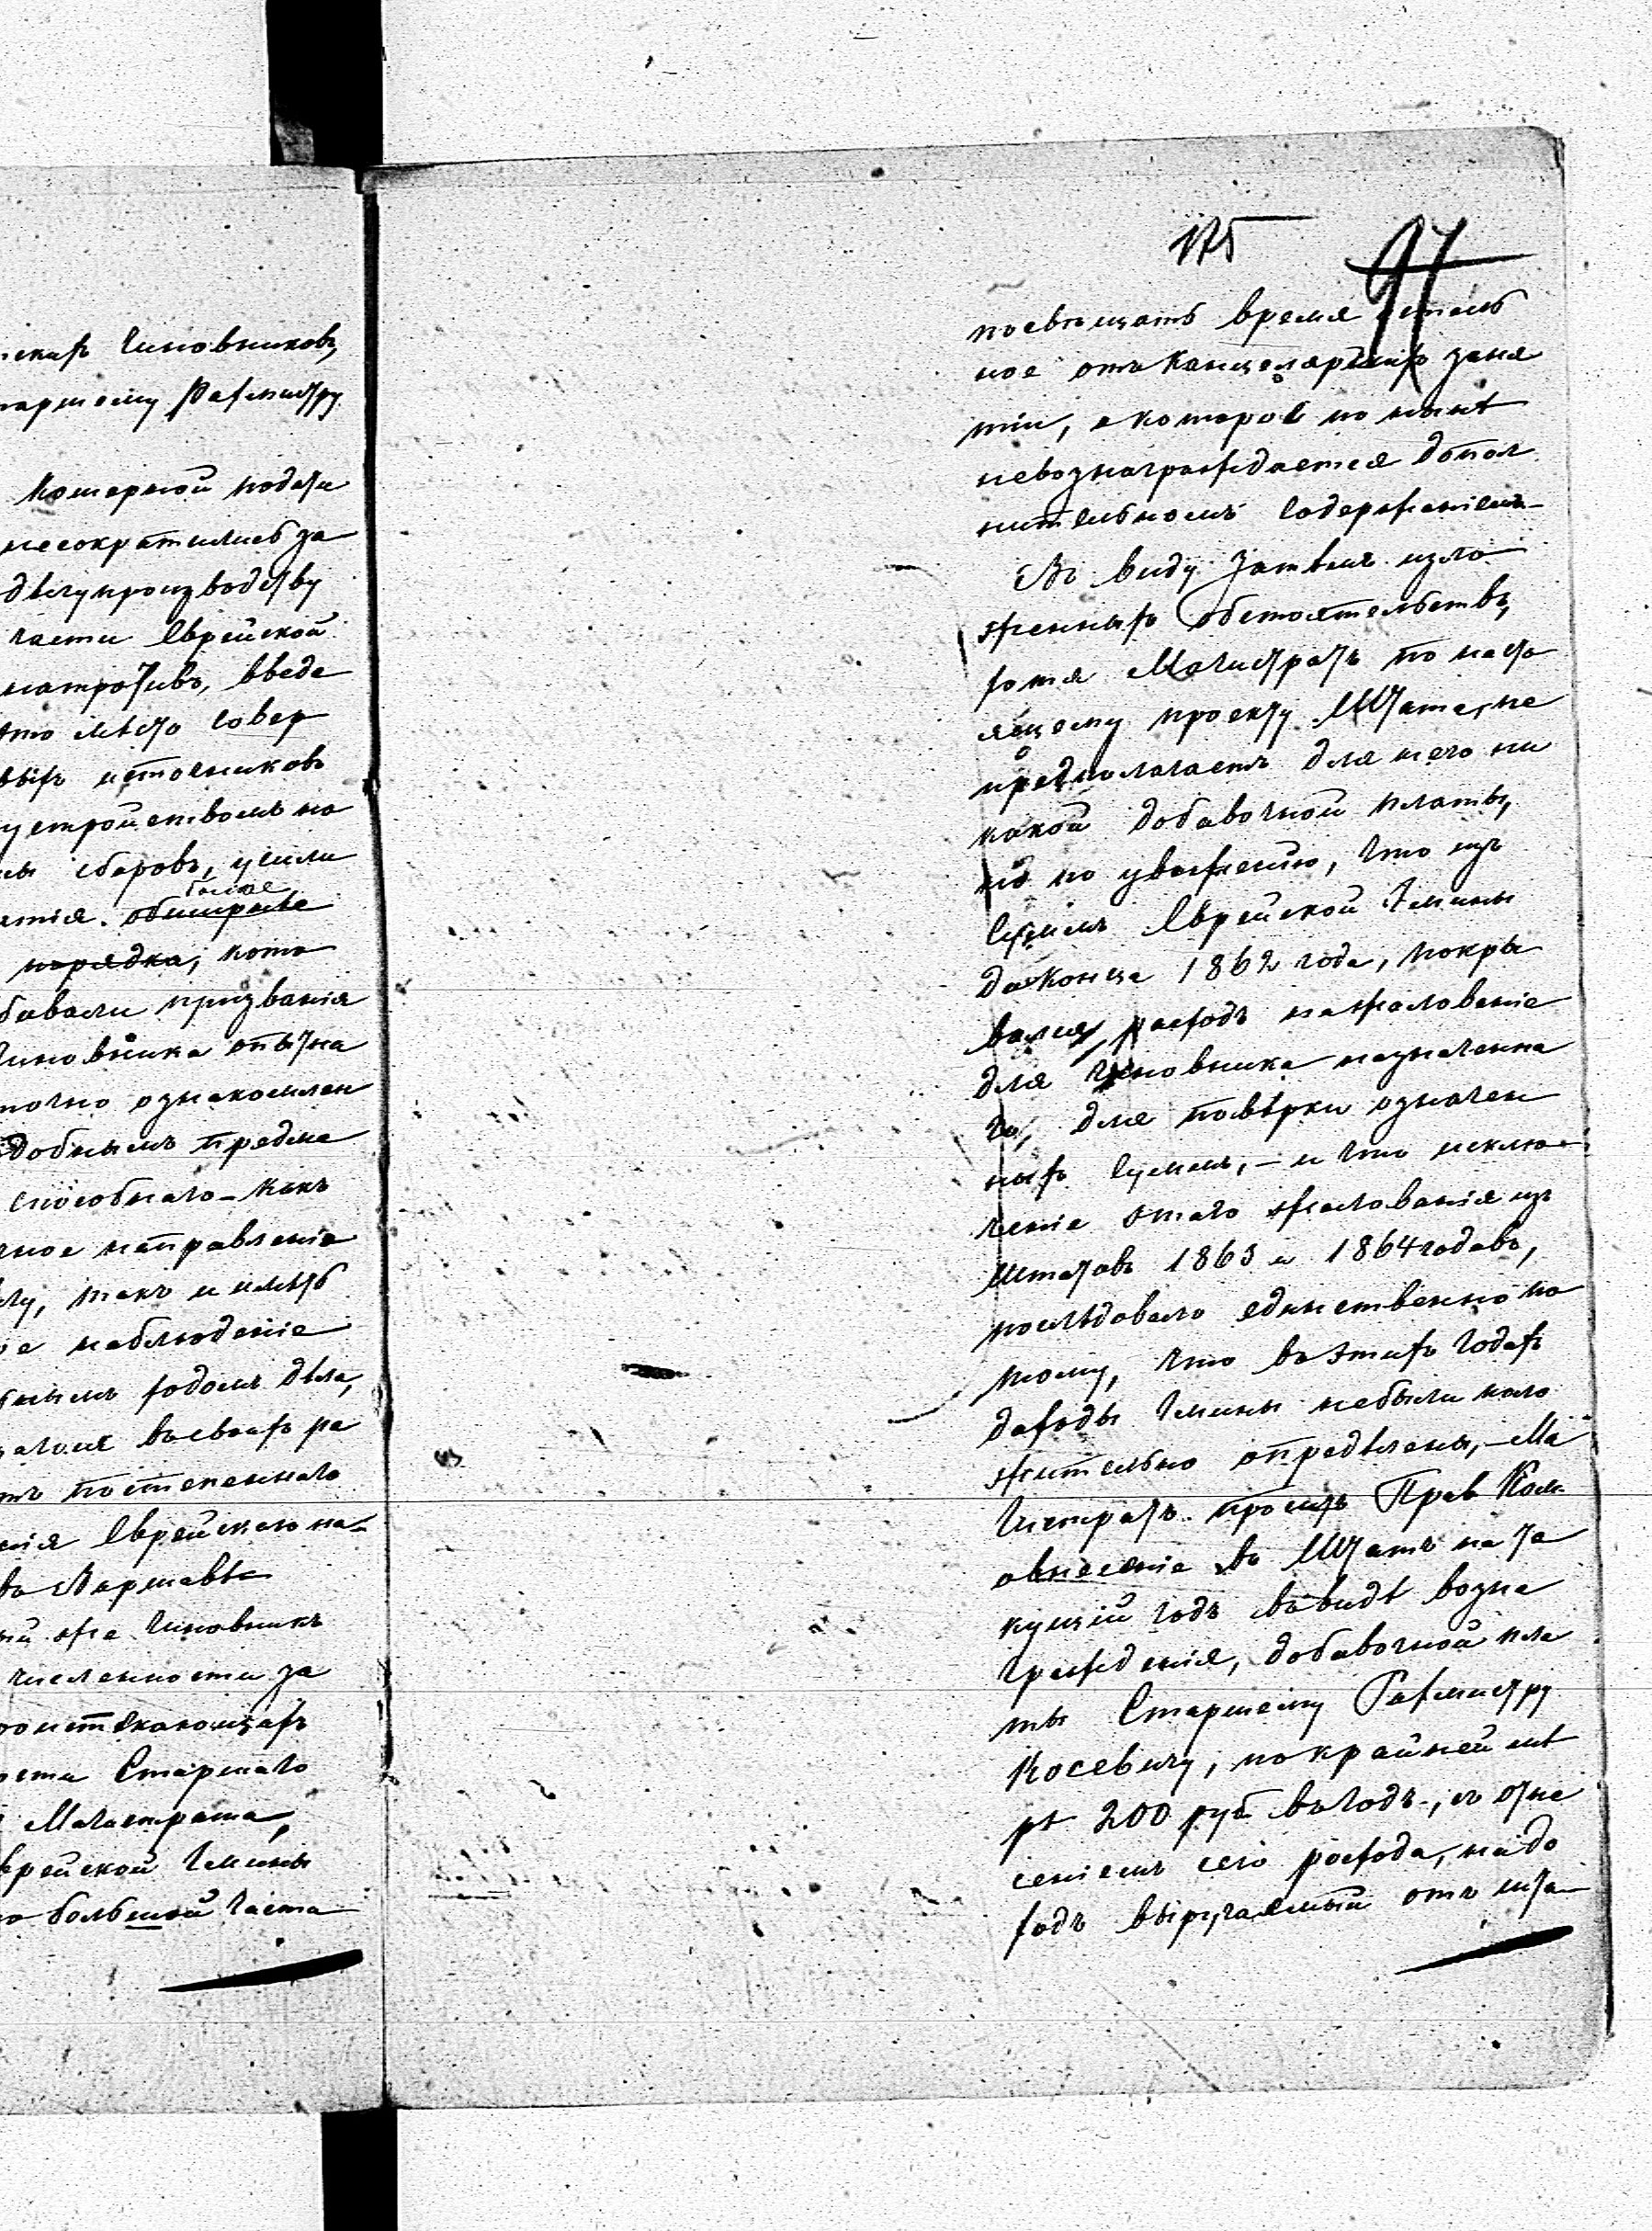 чиновниковъ,
Рахмистру
Кошерной подати
несократились за
дѣлупроизводству
части Еврейской
натротивъ, введе
это мѣсто совер
источниковъ
устройствомъ на
сборовъ, усили
более
обширнѣе
порядка, кото
бавали призванія
чиновника опытна
точно ознакомлен
добнымъ предме
способнаго - какъ
ное направленіе
му, такъ и имѣтъ
наблюденіе
нымъ ходомъ дѣла,
въ своихъ ра
постепеннаго
нія Еврейскаго на-
въ Варшавѣ
же чиновникъ
численности за
проистекающихъ
ости Старшаго
Магистрата,
врейской Гмины
большой части
175
97
посвящать время
ное отъ Канцелярскихъ заня
тіи, а которое по нынѣ
невознаграждается допол
нительномъ содержаніемъ
Въ виду затѣмъ изло
женныхъ обстоятельствъ,
хотя Магистратъ по насто
ящему проекту Штата, не
предполагаетъ для него ни
какой добавочной платы,
но по уваженію, что изъ
суммъ Еврейской Гмины
до конца 1862 года, покры
вался, расходъ на жалованіе
для чиновника назначенна
го, для повѣрки означен
ныхъ суммъ, - и что исклю-
ченіе этого жалованія изъ
штатовъ 1863 и 1864 годовъ,
послѣдовало единственно по
тому, что въ этихъ годахъ
доходы Гмины небыли поло
жительно опредѣлены, - Ма
гистратъ проситъ Прав Ком.
о внесеніе въ Штатъ на те
кущій годъ въ видѣ возна
гражденія, добавочной пла
ты Старшему Рахмистру
Косевичу, по крайней мѣ
рѣ 200 руб въ годъ, съ отне
сеніемъ сего расхода, на до
ходъ выручаемый отъ шта-